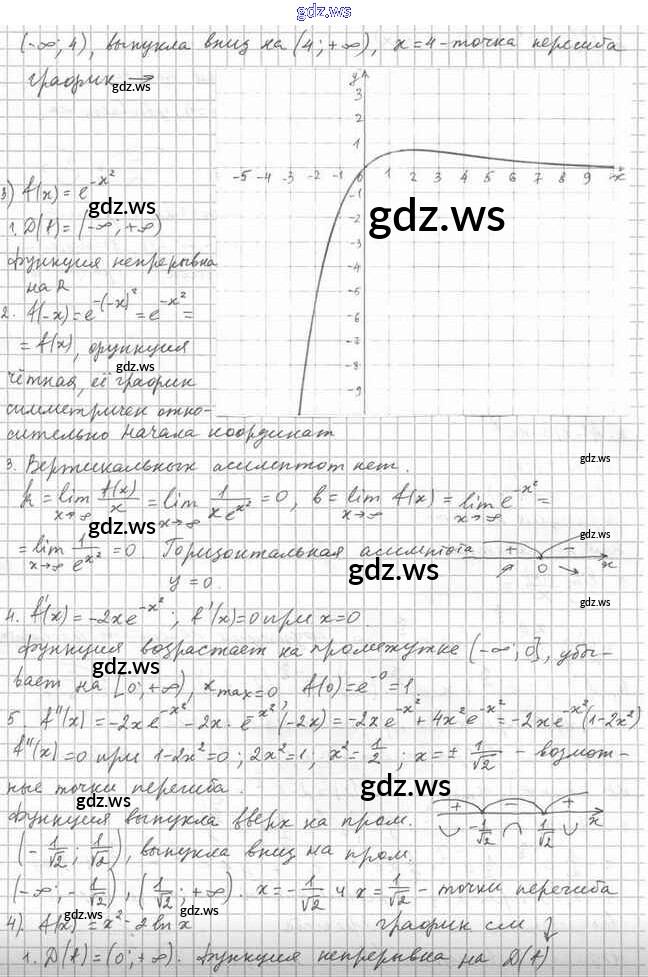 gdz.ws
(-∞; 4), выпукла вниз на (4; +∞), x = 4 - точка перегиба
график →
gdz.ws
y
3
2
1
-5 -4 -3 -2 -1 0 1 2 3 4 5 6 7 8 9 x
-1
-2
-3
-4
-5
-6
-7
-8
-9
gdz.ws
3) f(x) = e^{-x²}
gdz.ws
1. D(f) = (-∞; +∞)
функция непрерывна
на R
2. f(-x) = e^{-(-x)²} = e^{-x²} =
gdz.ws
= f(x), функция
gdz.ws
чётная, её график
симметричен отно-
сительно начала координат
3. Вертикальных асимптот нет.
gdz.ws
k = lim_{x→∞} f(x)/x = lim_{x→∞} 1/(xe^{x²}) = 0, b = lim_{x→∞} f(x) = lim_{x→∞} e^{-x²} =
gdz.ws
gdz.ws
= lim_{x→∞} 1/e^{x²} = 0. Горизонтальная асимптота
y = 0.
+ - 0 x
gdz.ws
gdz.ws
4. f'(x) = -2xe^{-x²}; f'(x) = 0 при x = 0.
функция возрастает на промежутке (-∞; 0], убы-
gdz.ws
вает на [0; +∞), x max = 0, f(0) = e^{-0} = 1.
5. f''(x) = -2xe^{-x²} - 2x·e^{-x²}(-2x) = -2xe^{-x²} + 4x²e^{-x²} = -2xe^{-x²}(1-2x²)
f''(x) = 0 при 1-2x² = 0; 2x² = 1; x² = 1/2; x = ± 1/√2 - возмож-
ные точки перегиба.
gdz.ws
gdz.ws
функция выпукла вверх на пром.
+ - + -1/√2 1/√2 x
(-1/√2; 1/√2), выпукла вниз на пром.
(-∞; -1/√2), (1/√2; +∞). x = -1/√2 и x = 1/√2 - точки перегиба
gdz.ws
gdz.ws
4). f(x) = x² - 2 ln x график см ↓
1. D(f) = (0; +∞). функция непрерывна на D(f)
gdz.ws
gdz.ws